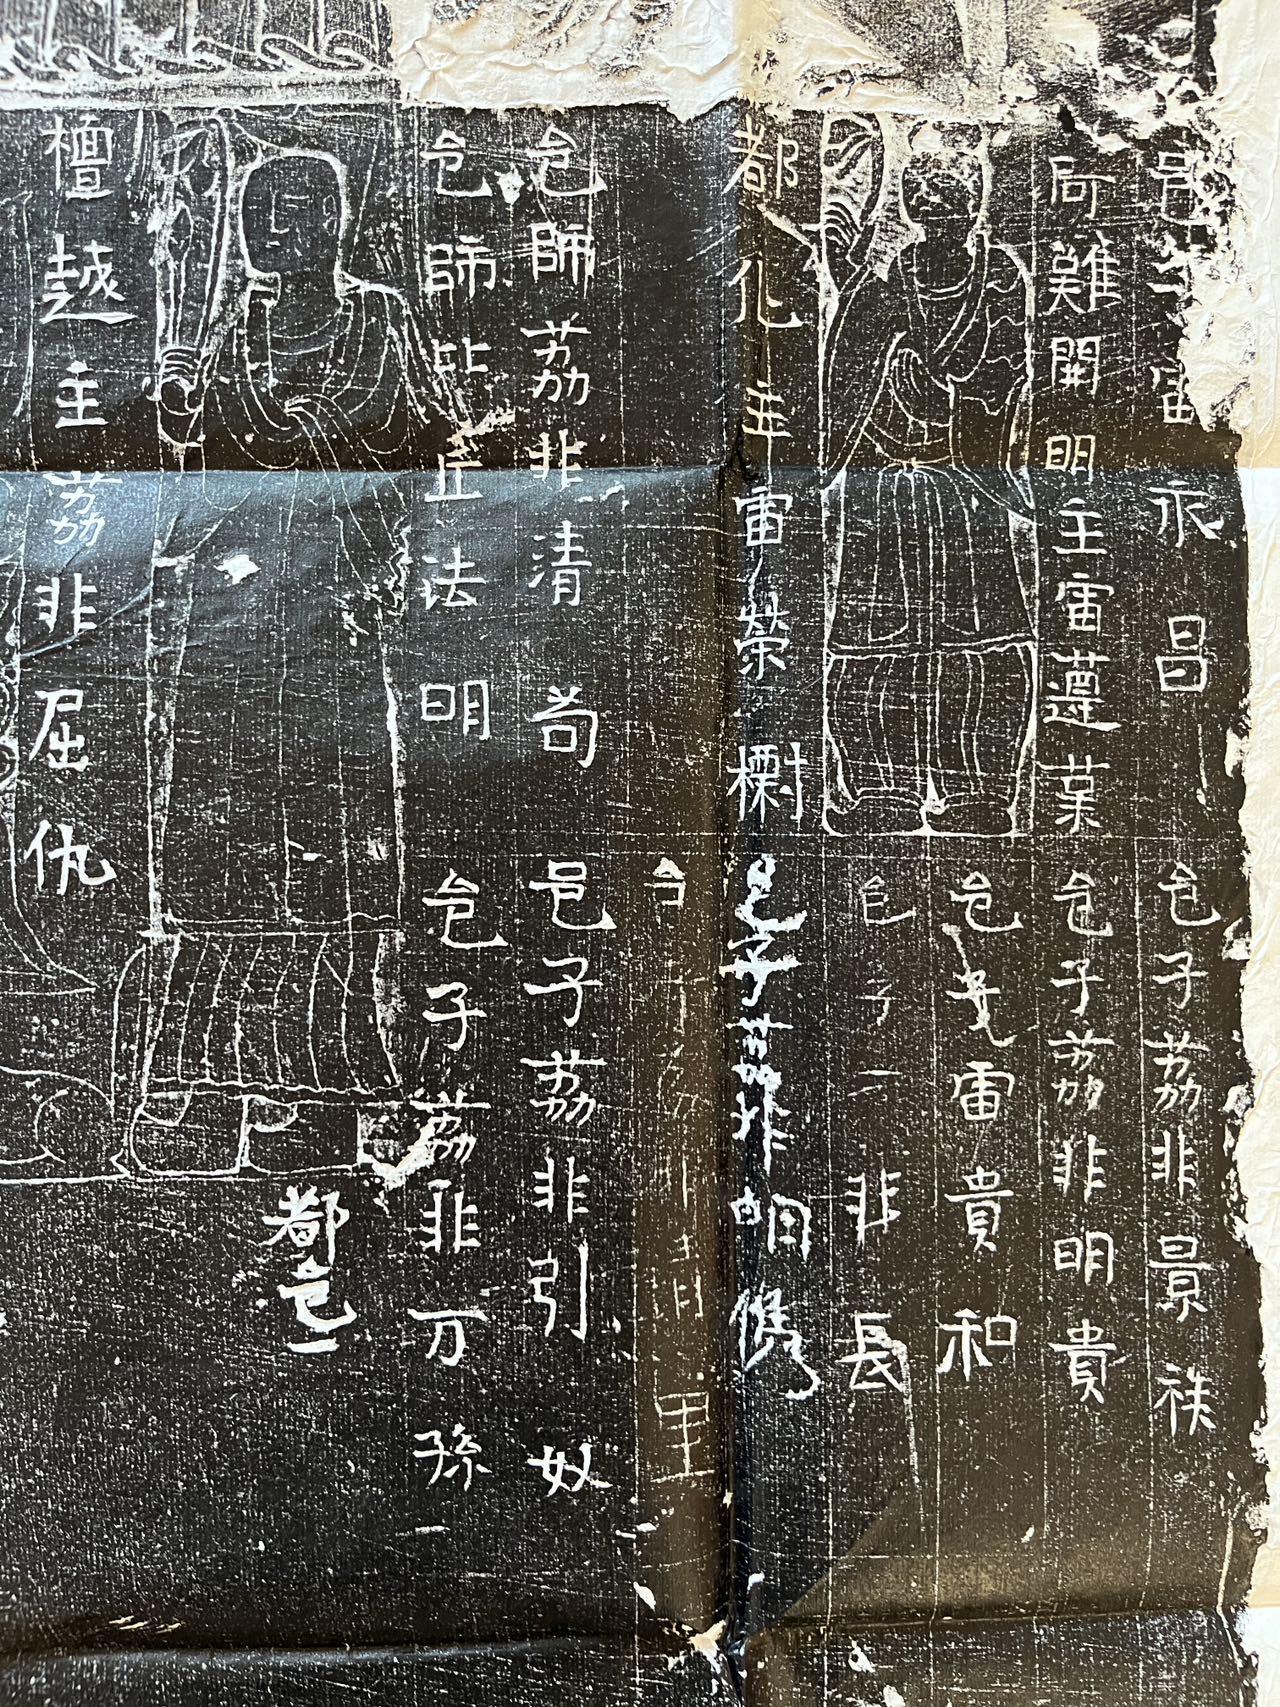 邑
永昌
阿難開明主雷遵業
都化主雷榮
邑師荔非清苟
邑師比丘法明
檀越主荔非屈仇
邑子荔非景祑
邑子荔非明貴
邑
雷貴和
邑子
非長
邑子荔非
邑子荔非引奴
邑子荔非万孫
都邑